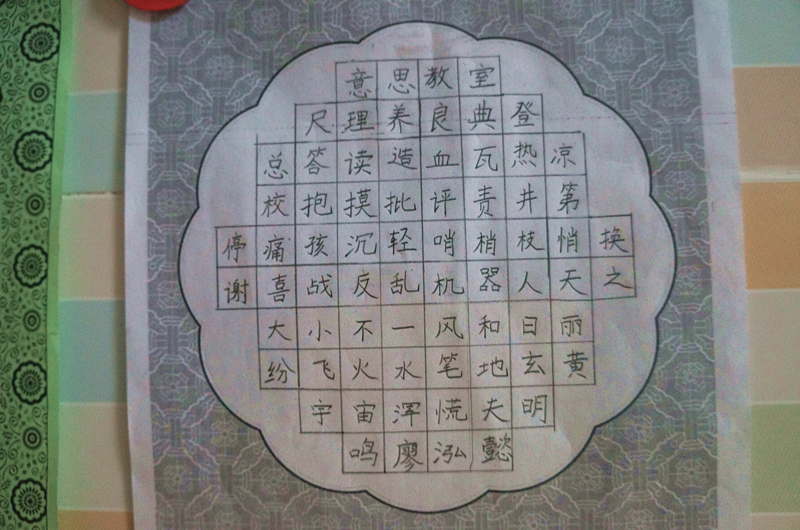 意思教室
尺理养良典登
总答读造血瓦热凉
校抱摸批评责井第
停痛孩沉轻哨梢枝悄换
谢喜战反乱机器人天之
大小不一风和日丽
纷飞火水笔地玄黄
宇宙浑慌夫明
鸣廖泓懿